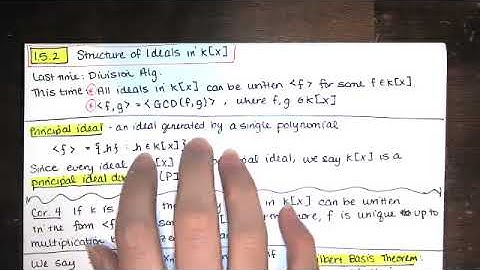 1.5.2 Structure of Ideals in k[x]
Last time: Division Alg.
This time: All ideals in k[x] can be written <f> for some f∈k[x]
<f,g> = <GCD(f,g)>, where f,g ∈ k[x]
Principal ideal - an ideal generated by a single polynomial
<f> = { h : h∈k[x]}
Since every ideal [x] ideal, we say k[x] is a
principal ideal do (P
Cor. 4 If k is in k[x] can be written
in the form <f> som more, f is unique up to
multiplication b ze
We say if ilbert Basis Theorem: